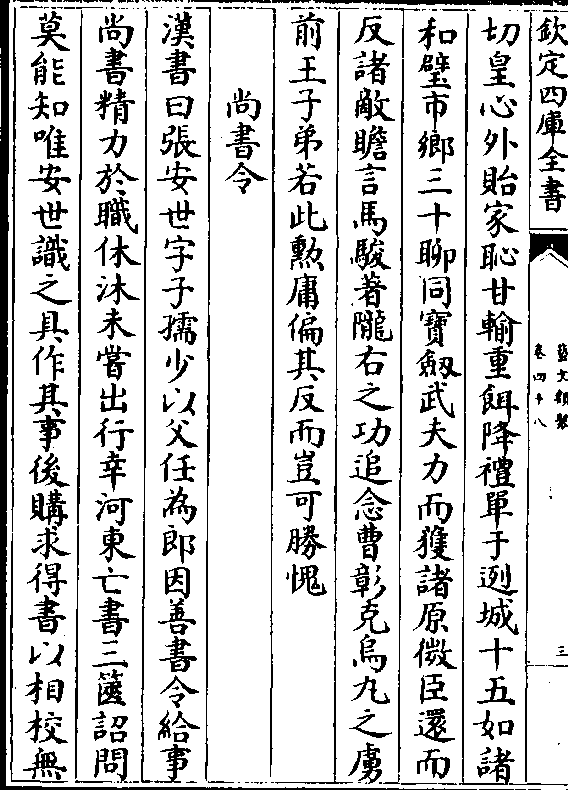 欽定四庫全書
藝文類聚
卷四十八
三
切皇心外貽家恥甘輸重餌降禮單于迾城十五如諸
和璧市鄉三十聊同寶劔武夫力而獲諸原微臣還而
反諸敵瞻言馬駿著隴右之功追念曹彰克烏九之虜
前王子弟若此勲庸偏其反而豈可勝愧
尚書令
漢書曰張安世字子孺少以父任為郎因善書令給事
尚書精力於職休沐未嘗出行幸河東亡書三篋詔問
莫能知唯安世識之具作其事後購求得書以相校無